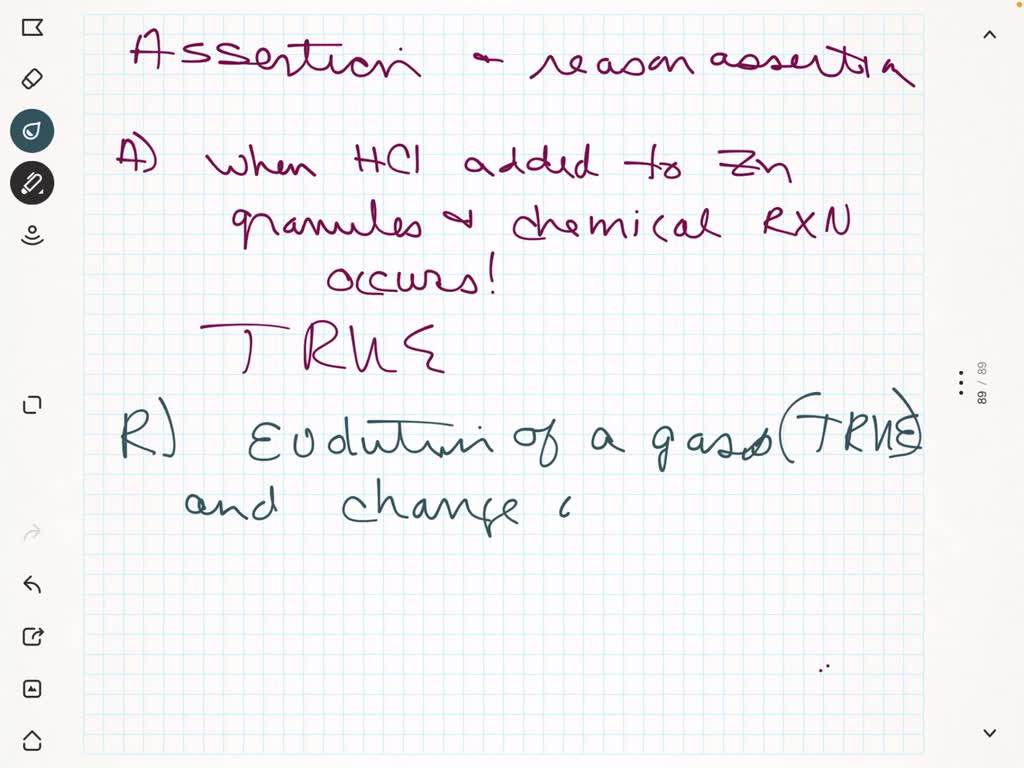 Assertion - reason assertin
A) when HCl added to Zn
granules & chemical RXN
occurs!
TRUE
R) Evolution of a gas (TRUE)
and change
89 / 89